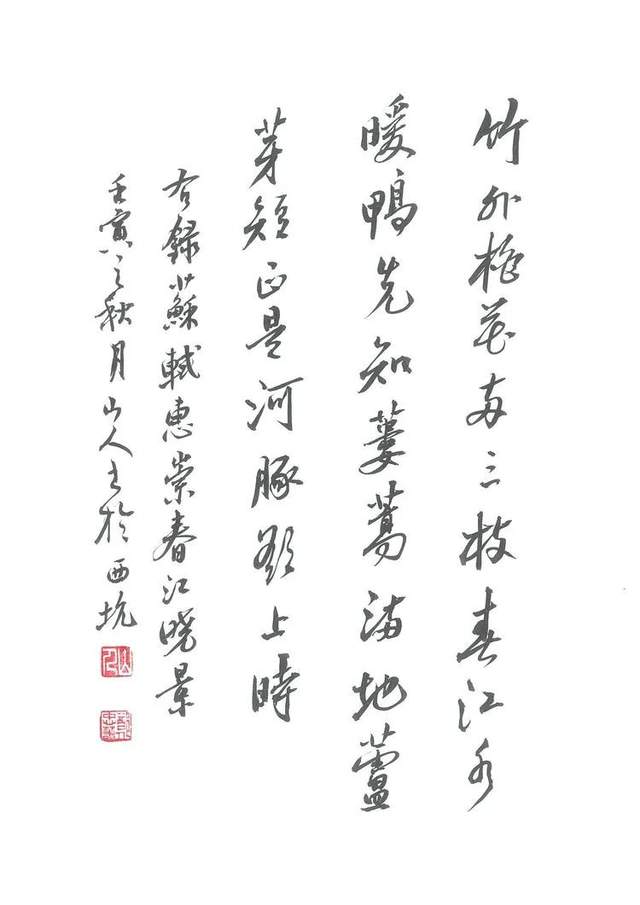 竹外桃花两三枝春江水
暖鴨先知蔞蒿满地蘆
芽短正是河豚欲上時
右録蘇軾惠崇春江晓景
壬寅之秋月山人书於西坑